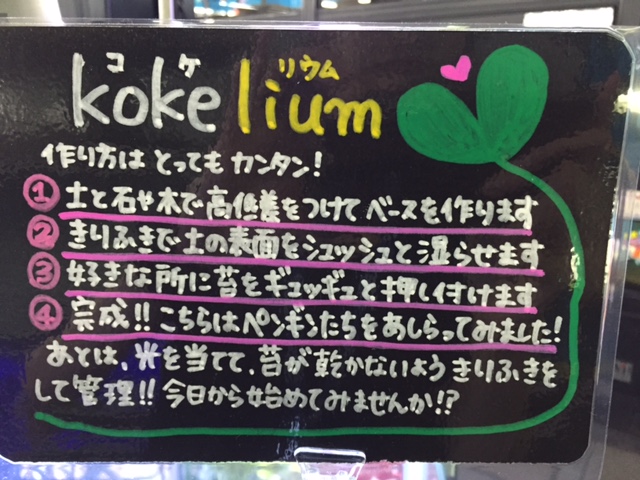 コケリウム
kokelium
作り方は とっても カンタン!
① 土と石や木で高低差をつけて ベースを作ります
② きりふきで土の表面をシュッシュと湿らせます
③ 好きな所に苔をギュッギュと押し付けます
④ 完成!! こちらはペンギンたちをあしらってみました!
あとは、光を当てて、苔が乾かないよう きりふきを
して管理!! 今日から始めてみませんか!?